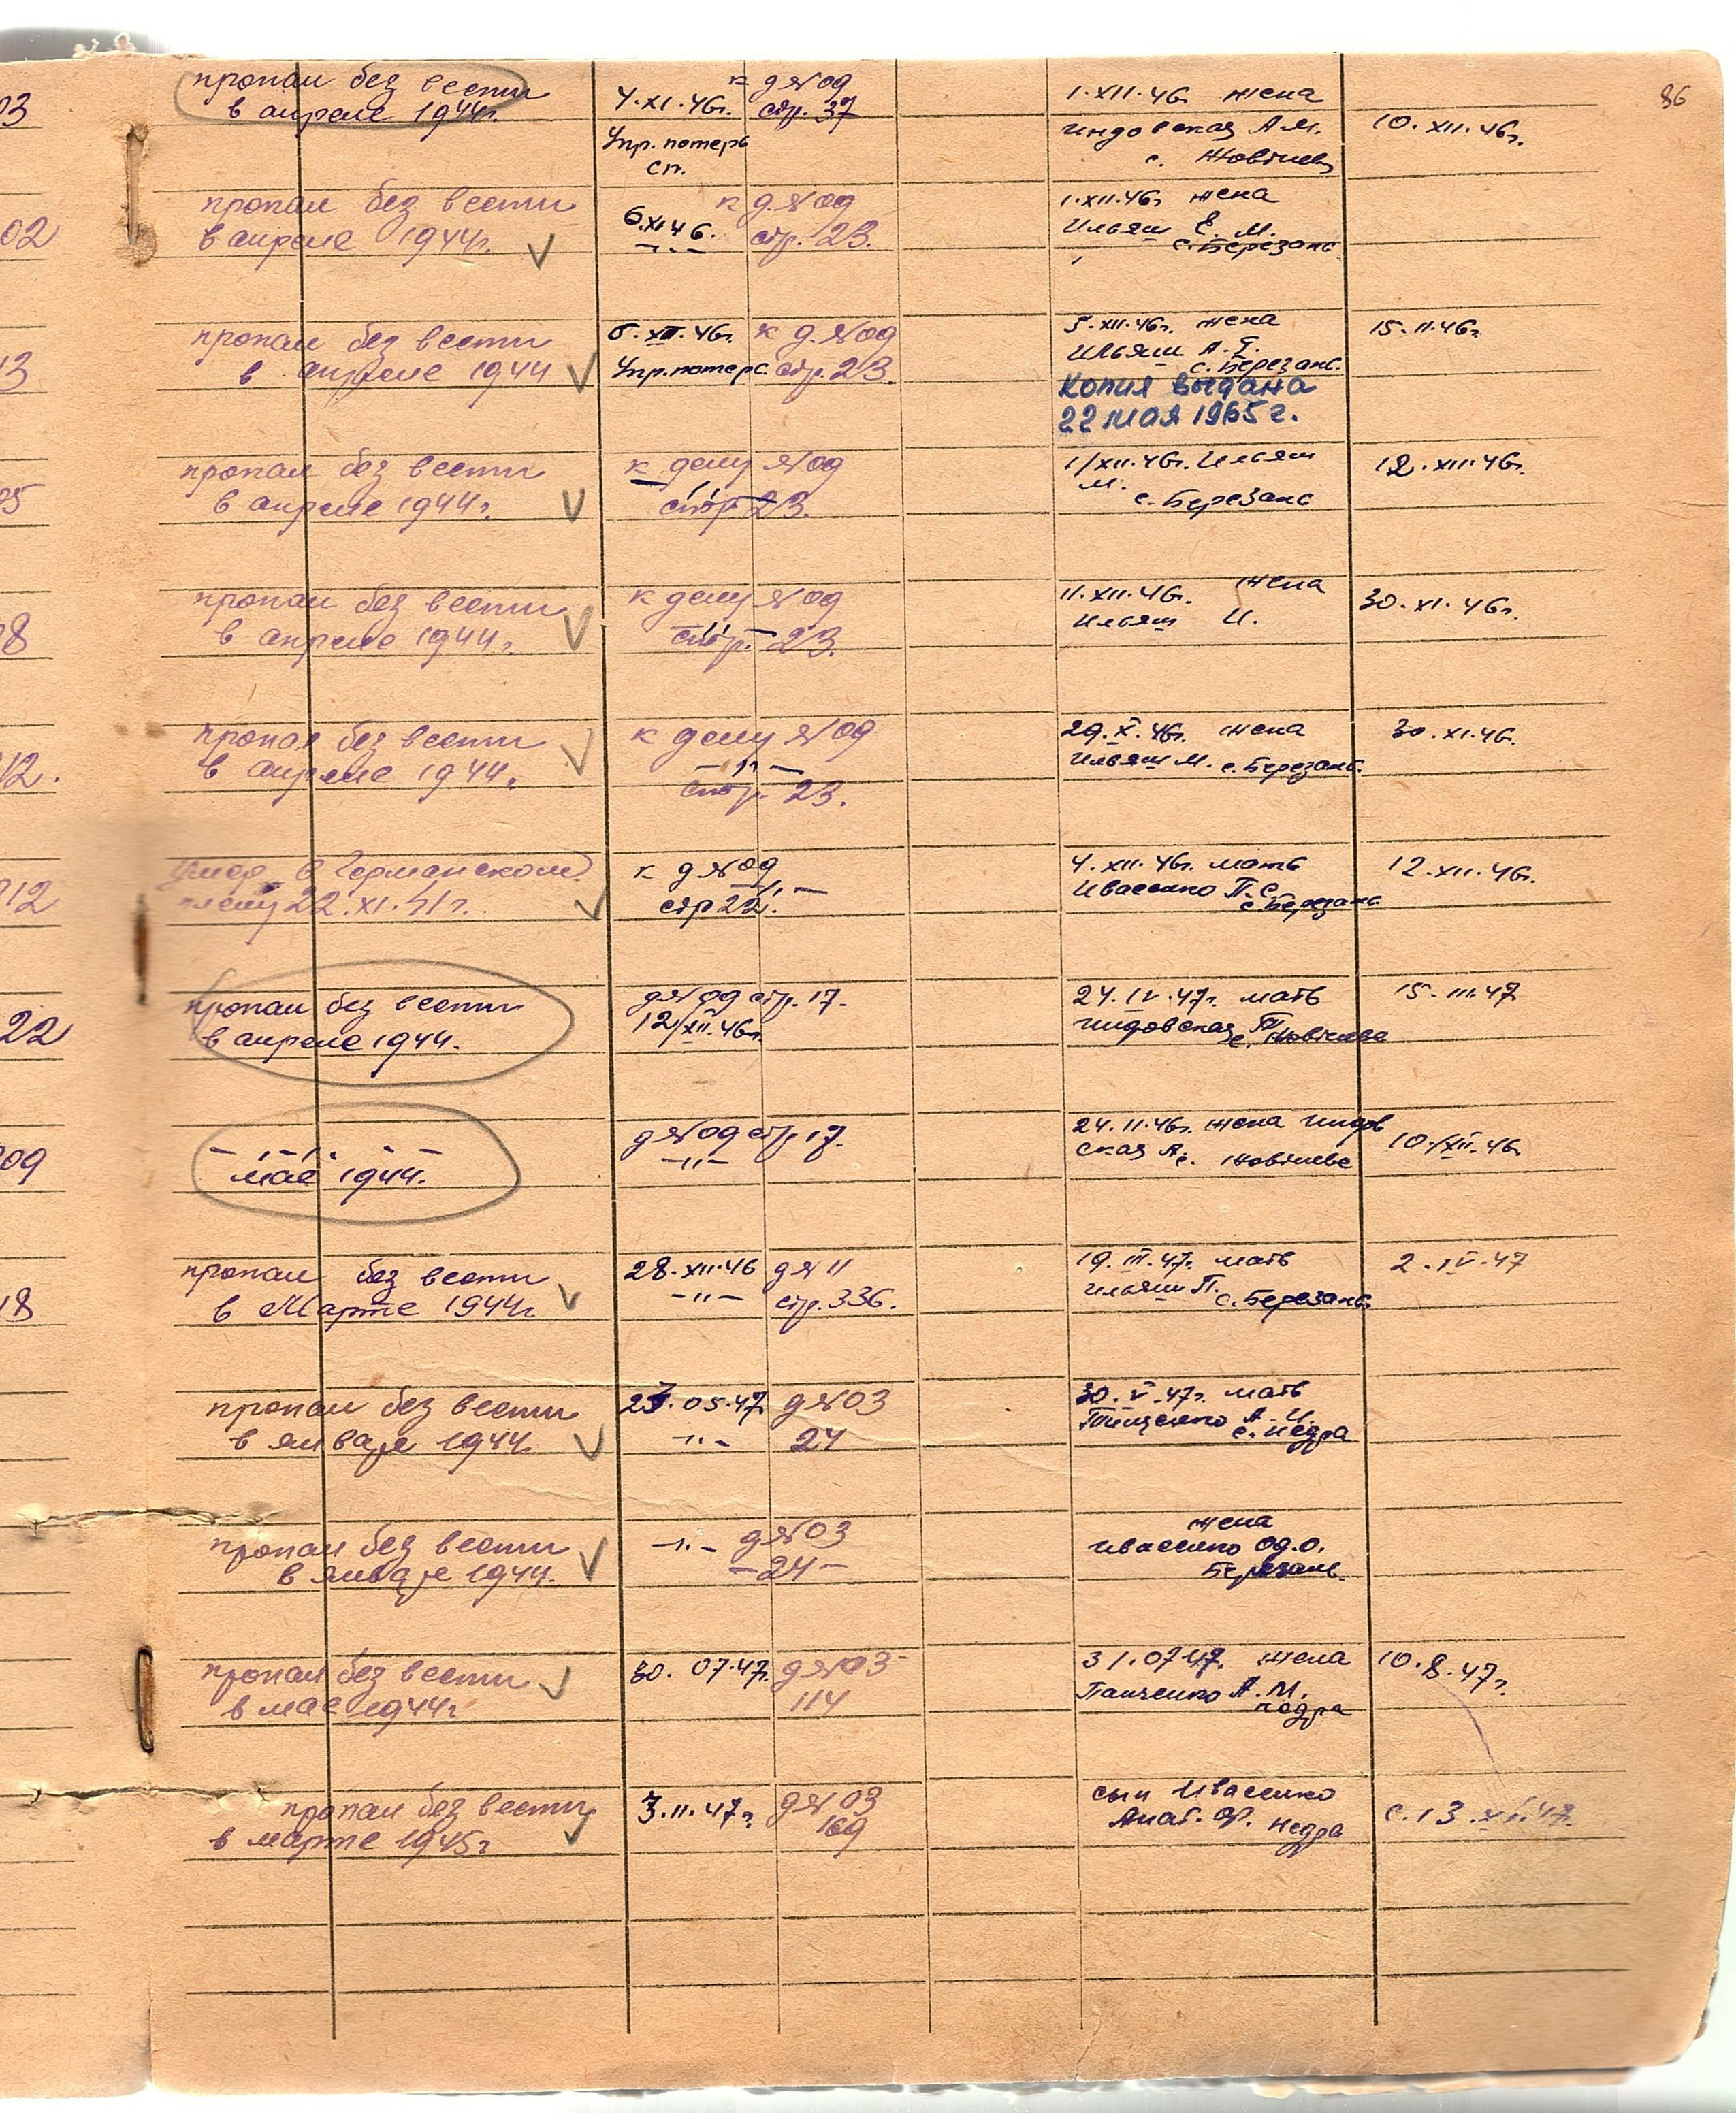 86
03
пропал без вести
в апреле 1944г.
4.XI.46г.
Упр. потерь
сп.
к д №09
стр. 37
1.XII.46г жена
А.М.
с.
10.XII.46г.
02
пропал без вести
в апреле 1944г.
6.XI 46.
-"-
к д. №09
стр. 23.
1.XII.46г жена
Ильяш Е. М.
с. Березань
13
пропал без вести
в апреле 1944
XII.46г.
Упр. потерь.
к д. №09
стр. 23.
5.XII.46г. жена
Ильяш А.Т.
с. Березань.
Копия выдана
22 мая 1965 г.
15.II.46г.
05
пропал без вести
в апреле 1944г.
к делу №09
-"-
стр 23.
1/XII.46г. Ильяш
М.
с. Березань
12.XII.46г.
08
пропал без вести
в апреле 1944г.
к делу №09
-"-
стр. 23.
11.XII.46г. жена
Ильяш И.
30.XI.46г.
12.
пропал без вести
в апреле 1944г.
к делу №09
-"-
стр. 23.
29.X.46г. жена
Ильяш М. с. Березань.
30.XI.46г.
912
умер в Германском
плену 22.XI.41г.
к д №09
-"-
стр 22.
4.XII.46г. мать
Ивасенко П.С.
с. Березань
12.XII.46г.
22
пропал без вести
в апреле 1944г.
д №09 стр. 17.
12/XII.46г.
24.IV.47г. мать
с.
15.III.47
09
-"-"- -
мае 1944г.
д №09 стр. 17.
-"-
24.II.46г. жена
ская А.
с.
10/XII.46г
18
пропал без вести
в Марте 1944г
28.XII.46
-"-
д № 11
стр. 336.
19.III.47г. мать
Ильяш П.
с. Березань.
2.IV.47
пропал без вести
в январе 1944г.
05.47г
-"-
д №03
24
30.V.47г. мать
А.И.
с. Недра
пропал без вести
в январе 1944г.
-"- д №03
-24-
жена
Ивасенко О.
Березань.
пропал без вести
в мае 1944г
30. 07.47г.
д №03
114
31.07.47г. жена
Панченко А.М.
Недра
10.8.47г.
пропал без вести
в марте 1945г
3.II.47г.
д №03
169
сын Ивасенко
Анат. Ф. Недра